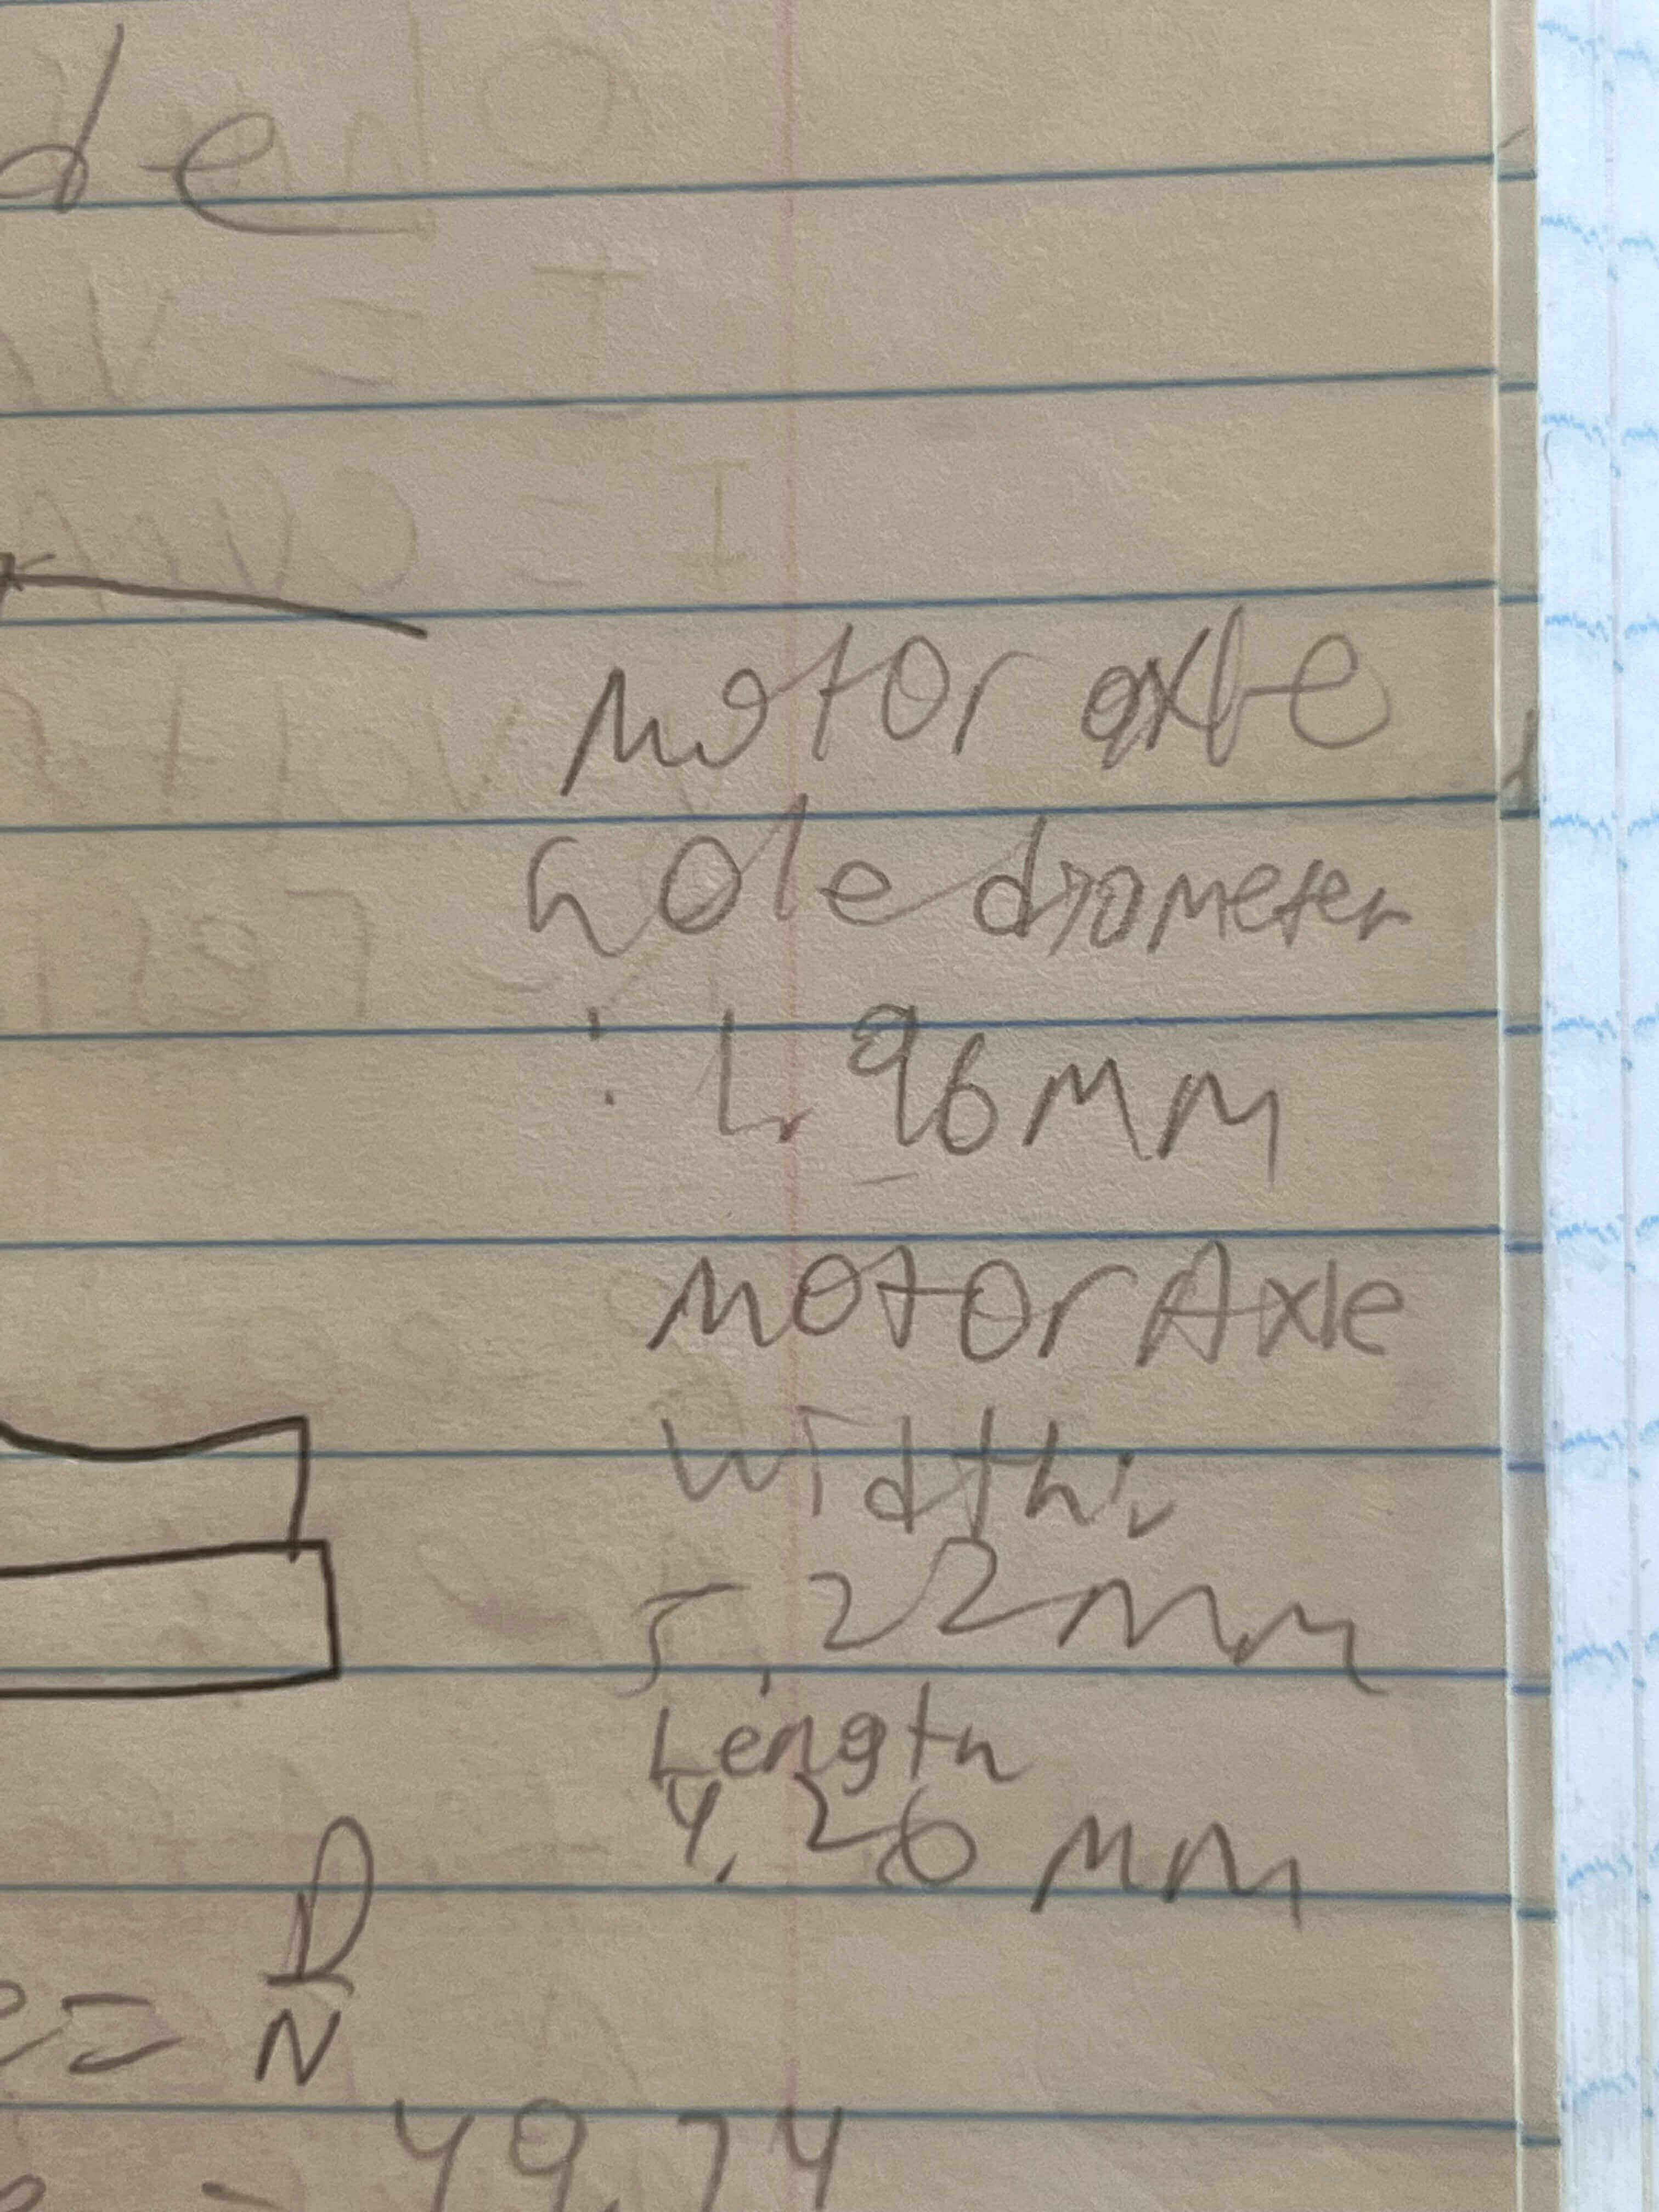 de
Motor axle
hole diameter
: 1.96MM
Motor Axle
width:
5.22mm
Length
4.26 MM
= D
N
= 49.74